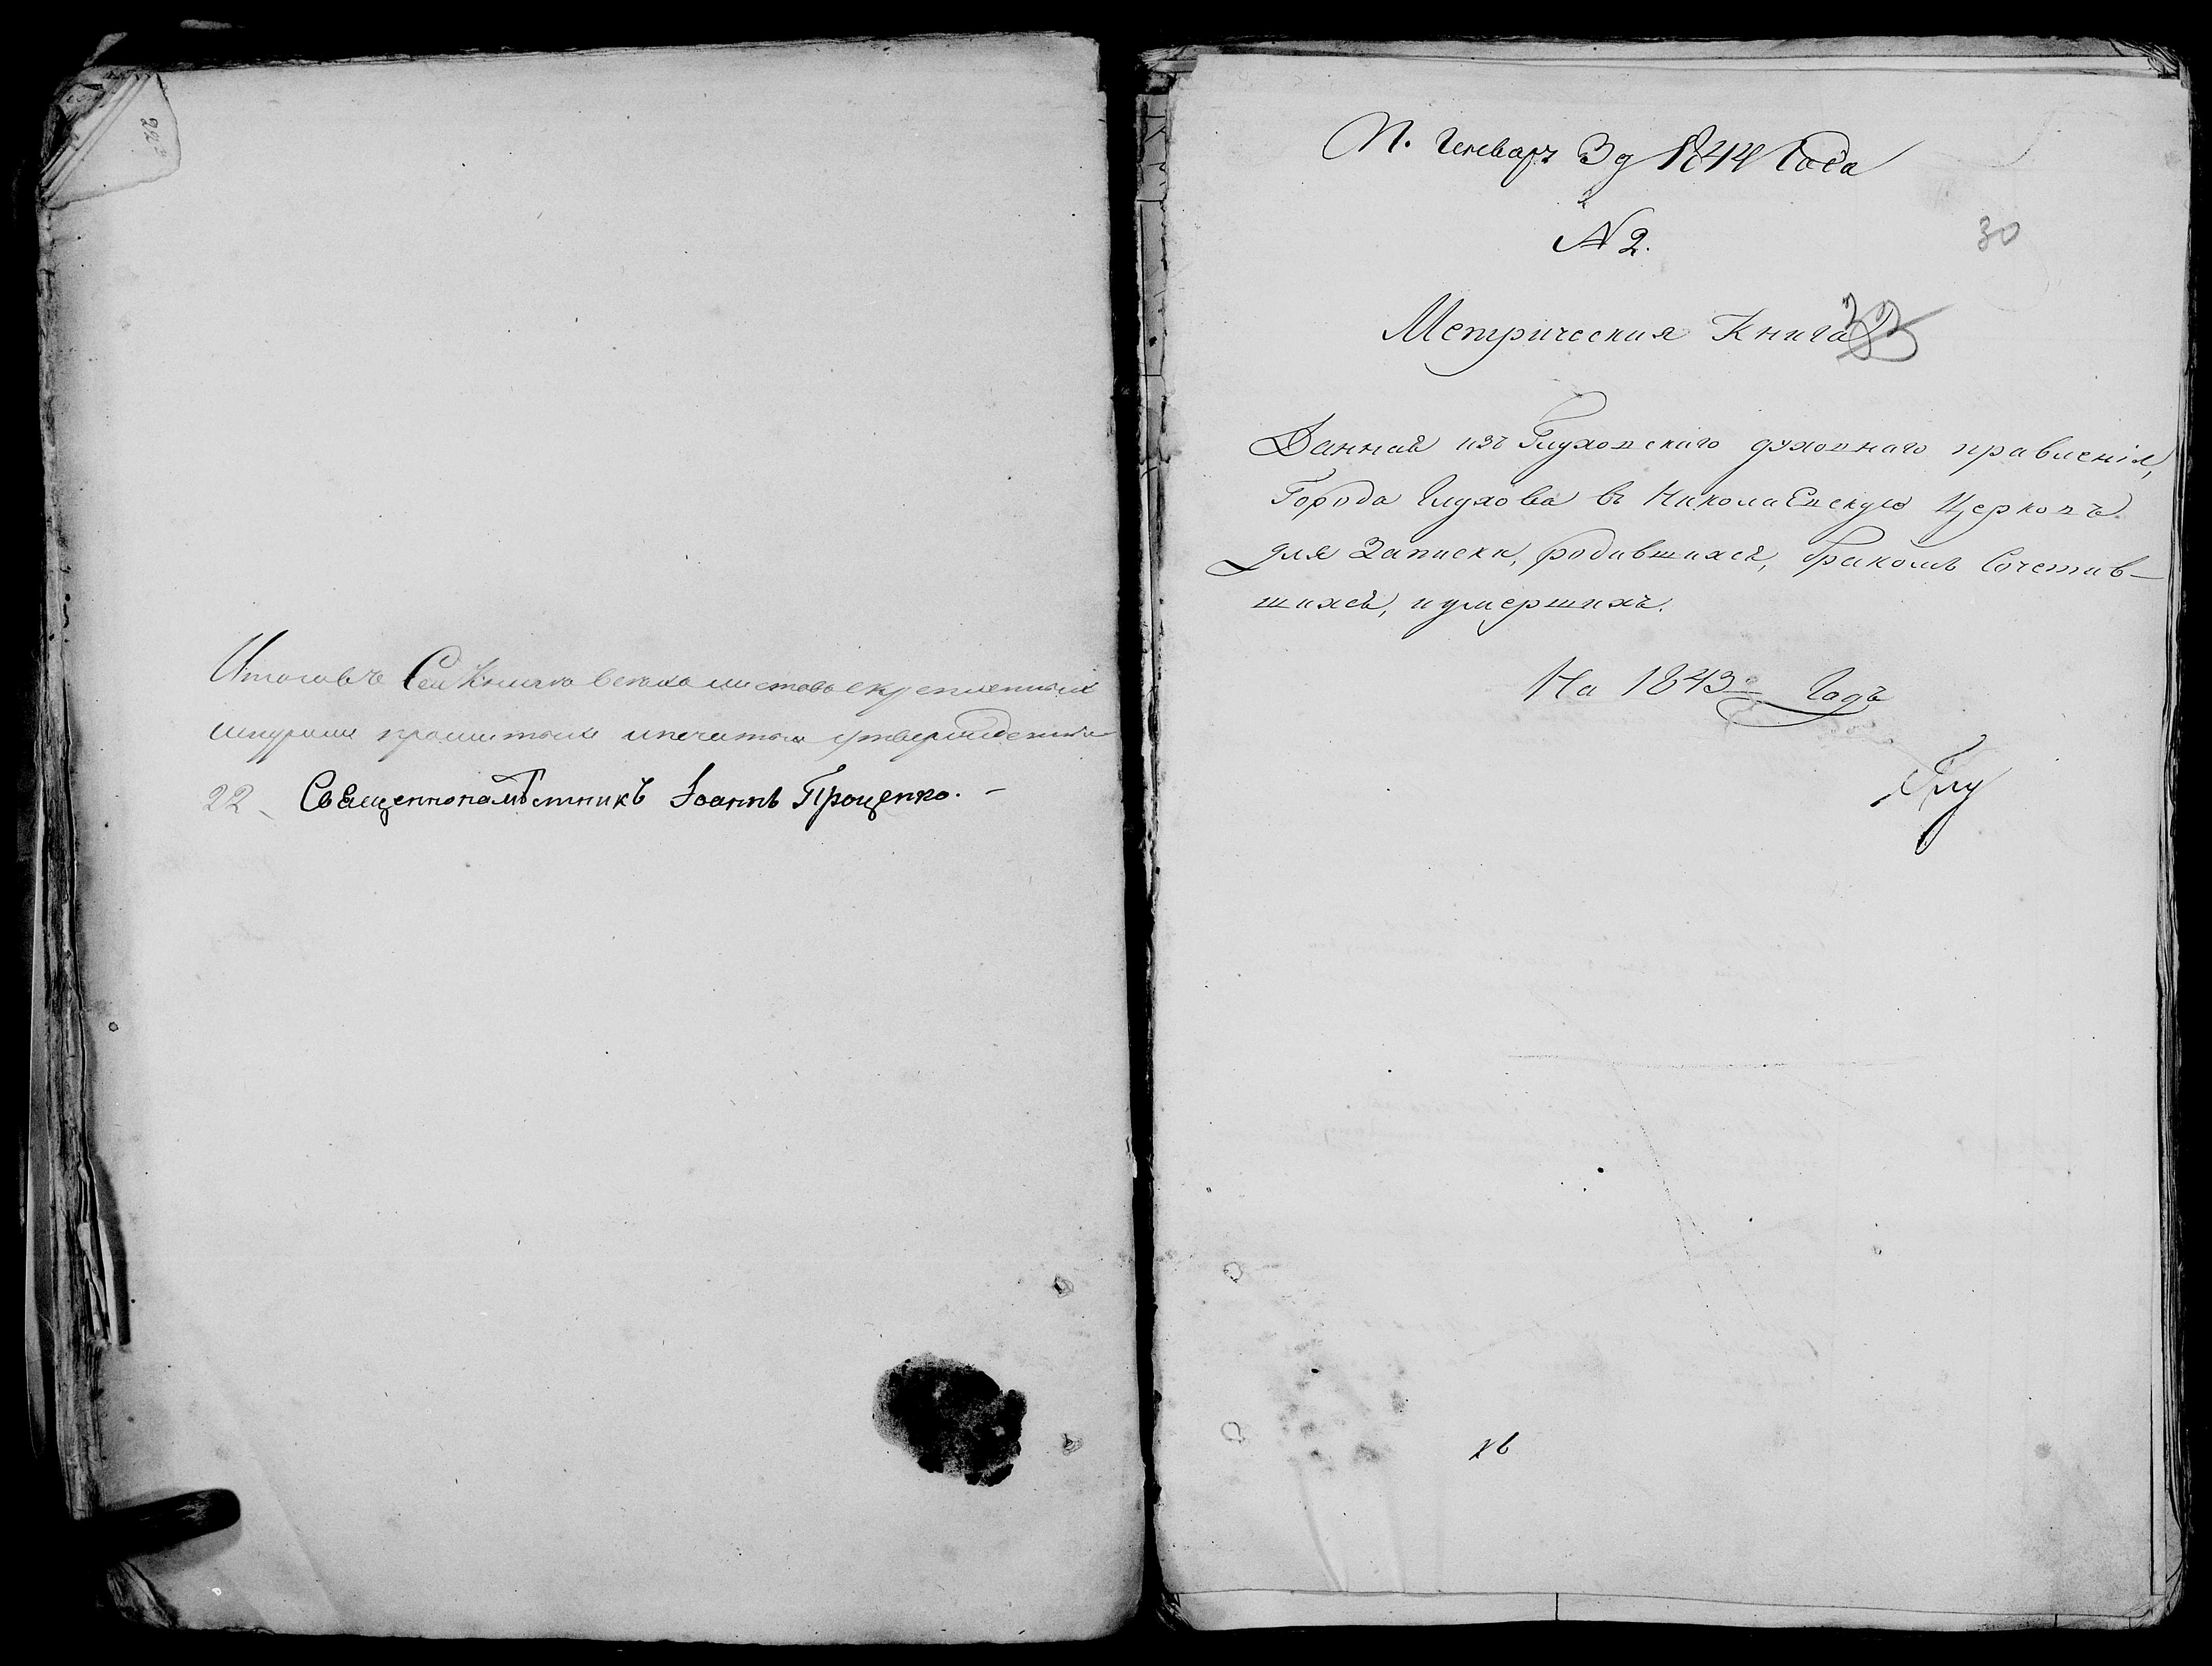 Итого въ сей Книги всехъ листовъ скрепленныхъ
шнуромъ прошитыхъ и печатью утвержденныхъ
22. Священнонамѣстникъ Іоаннъ Проценко.
П. Генваря 3 д 1844 Года
N 2.
30
Метрическия Книга
33
Данная изъ Глуховскаго духовнаго правленія,
Города Глухова въ Николаевскую Церковъ
для Записки, родившихся, бракомъ Сочетав-
шихся, и умершихъ.
На 1843й Годъ
Глу